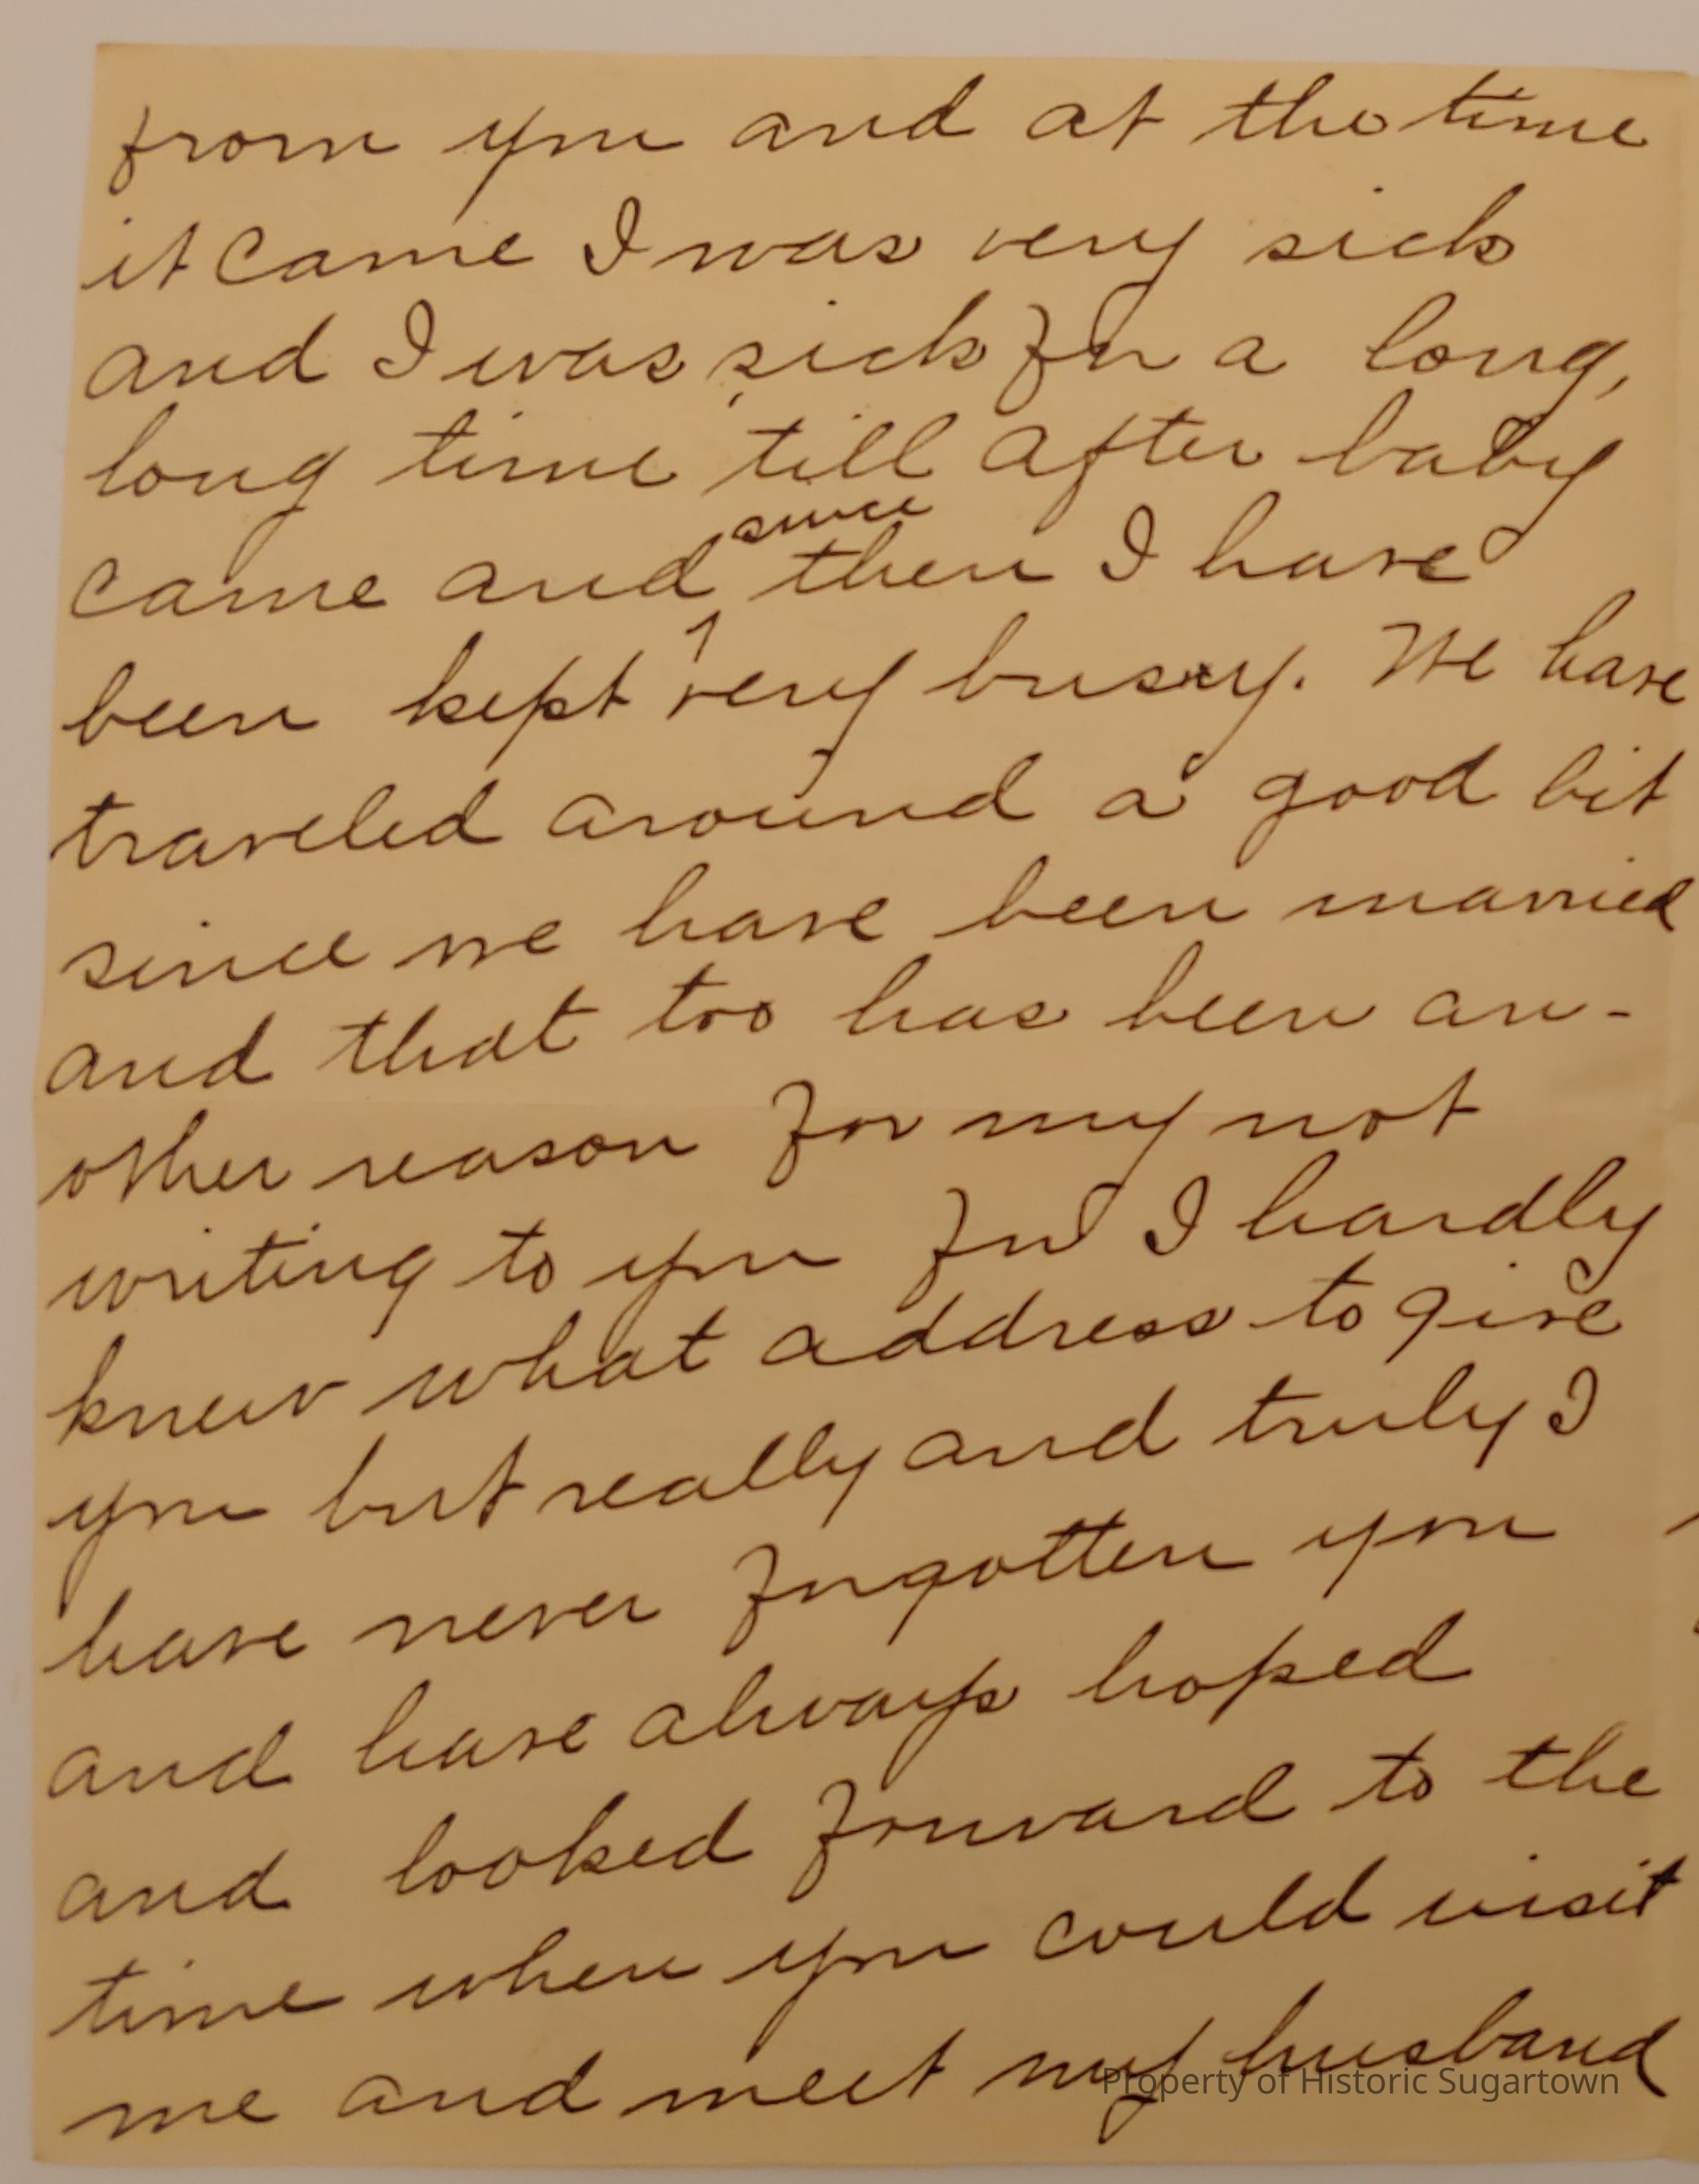 from you and at the time
it came I was very sick
and I was sick for a long,
long time till after baby
since
came and then I have
been kept very busy. We have
traveled around a good bit
since we have been married
and that too has been an-
other reason for my not
writing to you for I hardly
knew what address to give
you but really and truly I
have never forgotten you
and have always hoped
and looked forward to the
time when you could visit
me and meet my husband
Property of Historic Sugartown